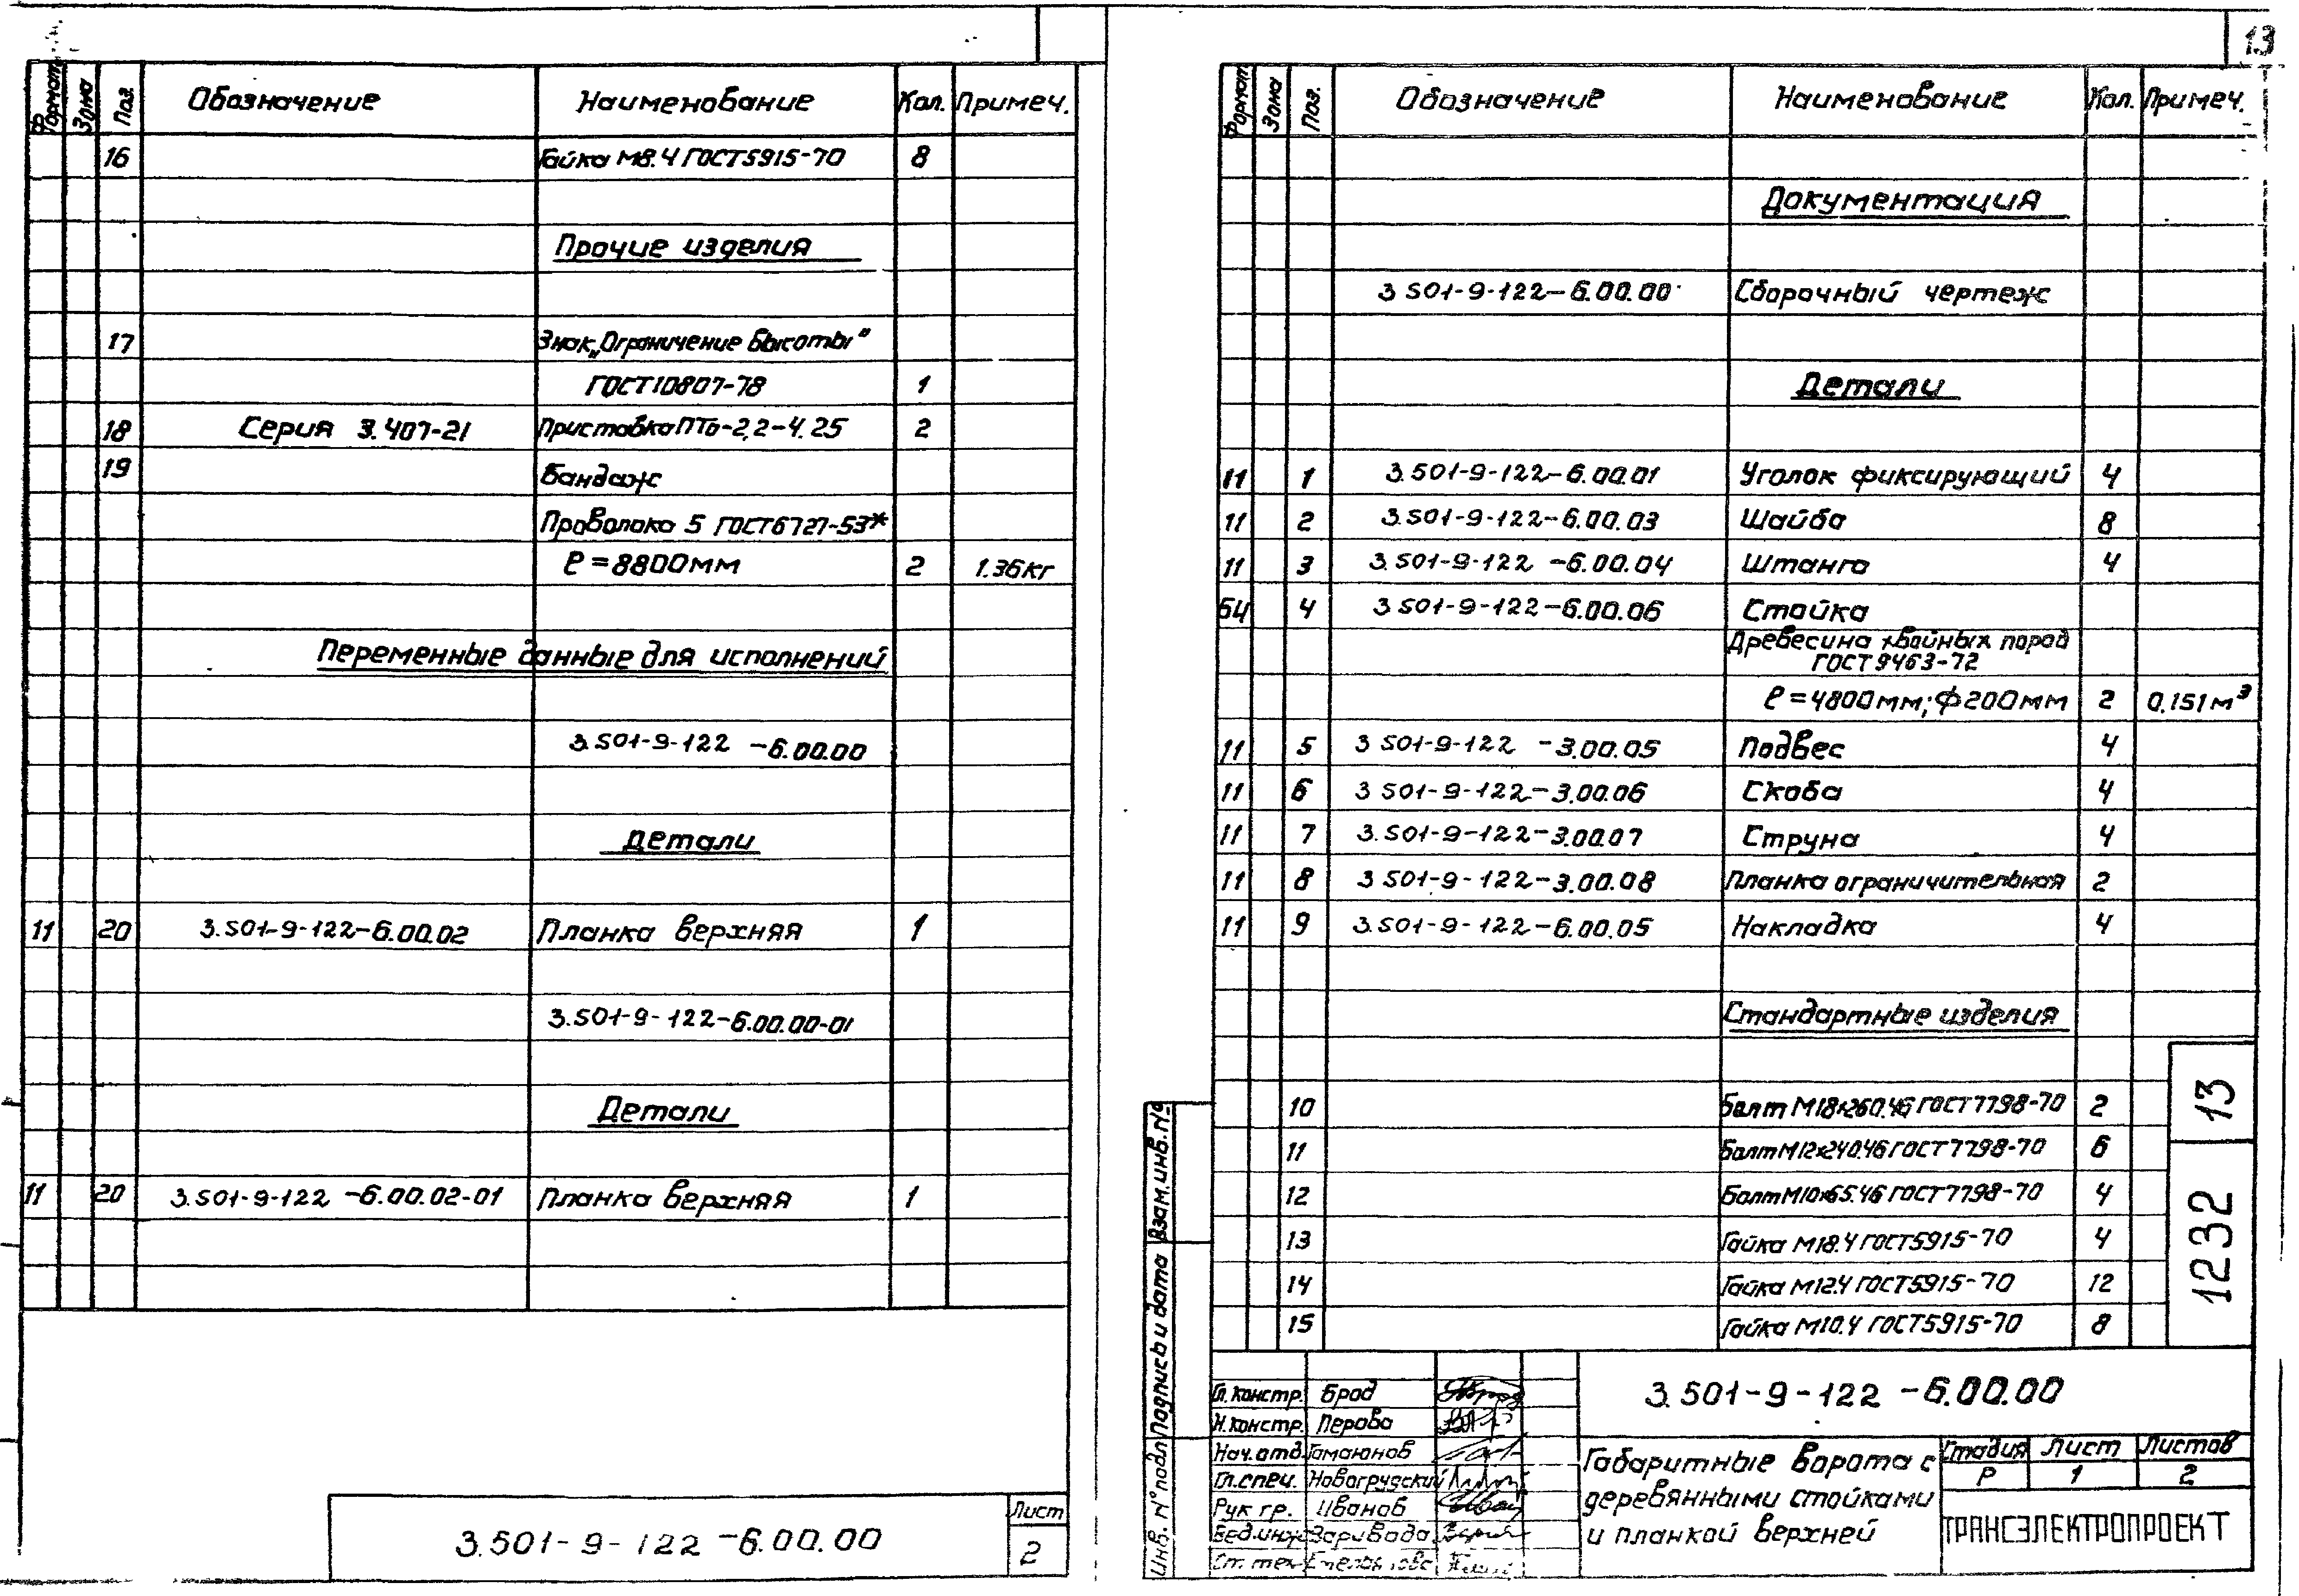 Формат Зона Поз. Обозначение Наименование Кол. Примеч.
16 Гайка М8.4 ГОСТ5915-70 8
Прочие изделия
17 Знак „Ограничение высоты"
ГОСТ10807-78 1
18 Серия 3.407-21 Приставка ПТо-2,2-4.25 2
19 Бандаж
Проволока 5 ГОСТ6727-53*
ℓ=8800мм 2 1.36кг
Переменные данные для исполнений
3.501-9-122-6.00.00
Детали
11 20 3.501-9-122-6.00.02 Планка верхняя 1
3.501-9-122-6.00.00-01
Детали
11 20 3.501-9-122-6.00.02-01 Планка верхняя 1
3.501-9-122-6.00.00
Лист
2
13
Формат Зона Поз. Обозначение Наименование Кол. Примеч.
Документация
3 501-9-122-6.00.00 Сборочный чертеж
Детали
11 1 3.501-9-122-6.00.01 Уголок фиксирующий 4
11 2 3.501-9-122-6.00.03 Шайба 8
11 3 3.501-9-122-6.00.04 Штанга 4
БЧ 4 3 501-9-122-6.00.06 Стойка
Древесина хвойных пород
ГОСТ 9463-72
ℓ=4800мм; ф200мм 2 0.151м³
11 5 3 501-9-122-3.00.05 Подвес 4
11 6 3 501-9-122-3.00.06 Скоба 4
11 7 3.501-9-122-3.00.07 Струна 4
11 8 3 501-9-122-3.00.08 Планка ограничительная 2
11 9 3.501-9-122-6.00.05 Накладка 4
Стандартные изделия
10 Болт М18х260.46 ГОСТ7798-70 2
11 Болт М12х240.46 ГОСТ7798-70 6
12 Болт М10х65.46 ГОСТ7798-70 4
13 Гайка М18.4 ГОСТ5915-70 4
14 Гайка М12.4 ГОСТ5915-70 12
15 Гайка М10.4 ГОСТ5915-70 8
1232 13
Инв. № подл Подпись и дата Взам.инв.№
Гл. констр. Брод
Н. констр. Перова
Нач. отд. Гамаюнов
Гл. спец. Новогрудский
Рук гр. Иванов
Вед.инж. Заривода
Ст. тех.
3.501-9-122-6.00.00
Габаритные ворота с
деревянными стойками
и планкой верхней
Стадия Лист Листов
Р 1 2
ТРАНСЭЛЕКТРОПРОЕКТ